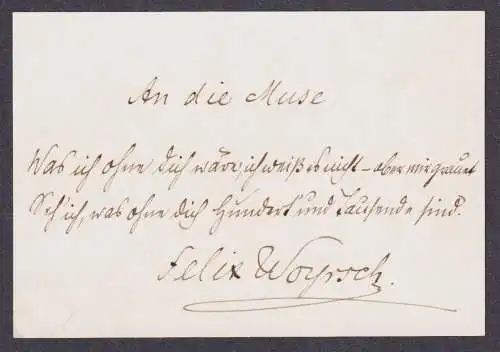 An die Muse
Was ich ohne Dich wäre, ich weiß es nicht – aber mir grauet
Seh' ich, was ohne dich Hundert' und Tausende sind.
Felix Woyrsch.